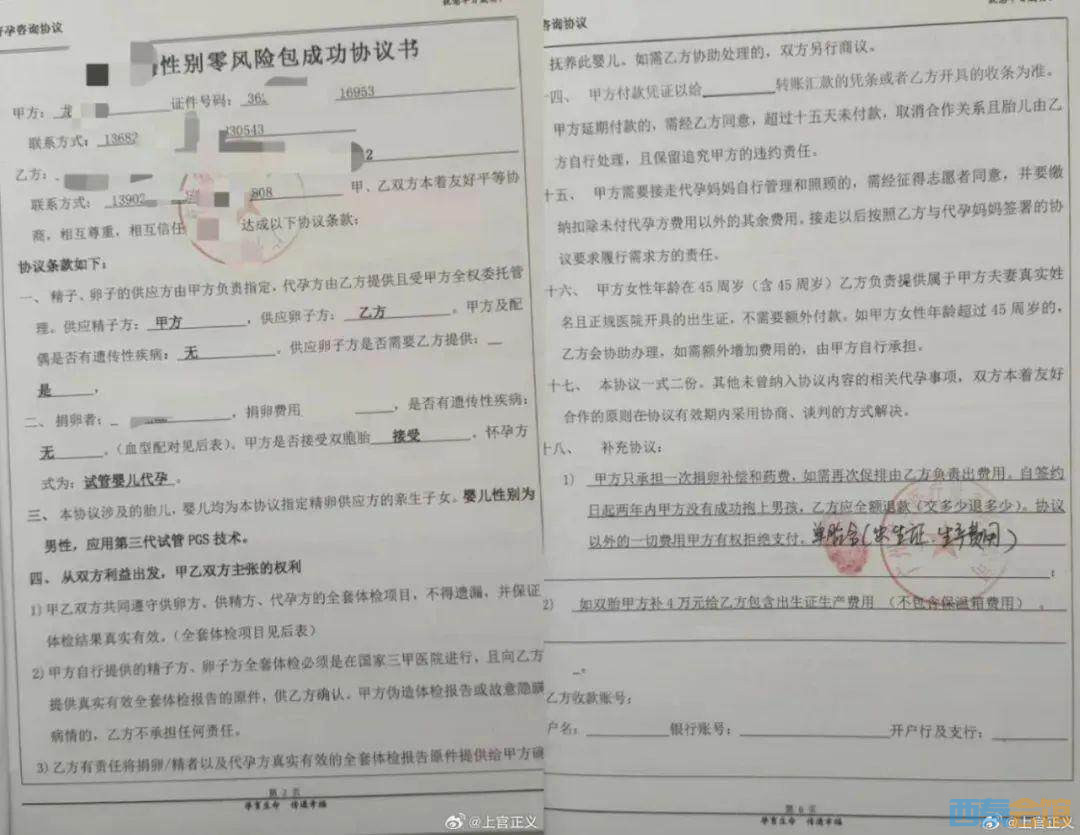 孕咨询协议
性别零风险包成功协议书
甲方：龙 证件号码：36 16953
联系方式：13682 030543
乙方： 2
联系方式：13902 808 甲、乙双方本着友好平等协
商，相互尊重，相互信任 达成以下协议条款：
协议条款如下：
一、精子、卵子的供应方由甲方负责指定，代孕方由乙方提供且受甲方全权委托管
理。供应精子方：甲方，供应卵子方：乙方。甲方及配
偶是否有遗传性疾病：无。供应卵子方是否需要乙方提供：
是，
二、捐卵者： ，捐卵费用 ，是否有遗传性疾病：
无。（血型配对见后表）。甲方是否接受双胞胎 接受。怀孕方
式为：试管婴儿代孕。
三、本协议涉及的胎儿，婴儿均为本协议指定精卵供应方的亲生子女。婴儿性别为
男性，应用第三代试管 PGS 技术。
四、从双方利益出发，甲乙双方主张的权利
1）甲乙双方共同遵守供卵方、供精方、代孕方的全套体检项目，不得遗漏，并保证
体检结果真实有效。（全套体检项目见后表）
2）甲方自行提供的精子方、卵子方全套体检必须是在国家三甲医院进行，且向乙方
提供真实有效全套体检报告的原件，供乙方确认。甲方伪造体检报告或故意隐瞒
病情的，乙方不承担任何责任。
3）乙方有责任将捐卵/精者以及代孕方真实有效的全套体检报告原件提供给甲方确
第 2 页
孕育生命 传递幸福
@上官正义
咨询协议
抚养此婴儿。如需乙方协助处理的，双方另行商议。
十四、甲方付款凭证以给 转账汇款的凭条或者乙方开具的收条为准。
甲方延期付款的，需经乙方同意，超过十五天未付款，取消合作关系且胎儿由乙
方自行处理，且保留追究甲方的违约责任。
十五、甲方需要接走代孕妈妈自行管理和照顾的，需经征得志愿者同意，并要缴
纳扣除未付代孕方费用以外的其余费用。接走以后按照乙方与代孕妈妈签署的协
议要求履行需求方的责任。
十六、甲方女性年龄在 45 周岁（含 45 周岁）乙方负责提供属于甲方夫妻真实姓
名且正规医院开具的出生证，不需要额外付款。如甲方女性年龄超过 45 周岁的，
乙方会协助办理，如需额外增加费用的，由甲方自行承担。
十七、本协议一式二份。其他未曾纳入协议内容的相关代孕事项，双方本着友好
合作的原则在协议有效期内采用协商、谈判的方式解决。
十八、补充协议：
1）甲方只承担一次捐卵补偿和药费，如需再次促排由乙方负责出费用。自签约
日起两年内甲方没有成功抱上男孩，乙方应全额退款（交多少退多少）。协议
以外的一切费用甲方有权拒绝支付。单胎含（出生证、生产费用）
；
2）如双胎甲方补 4 万元给乙方包含出生证生产费用（不包含保温箱费用）。
。
乙方收款账号：
户名： 银行账号： 开户行及支行：
第 6 页
孕育生命 传递幸福
@上官正义